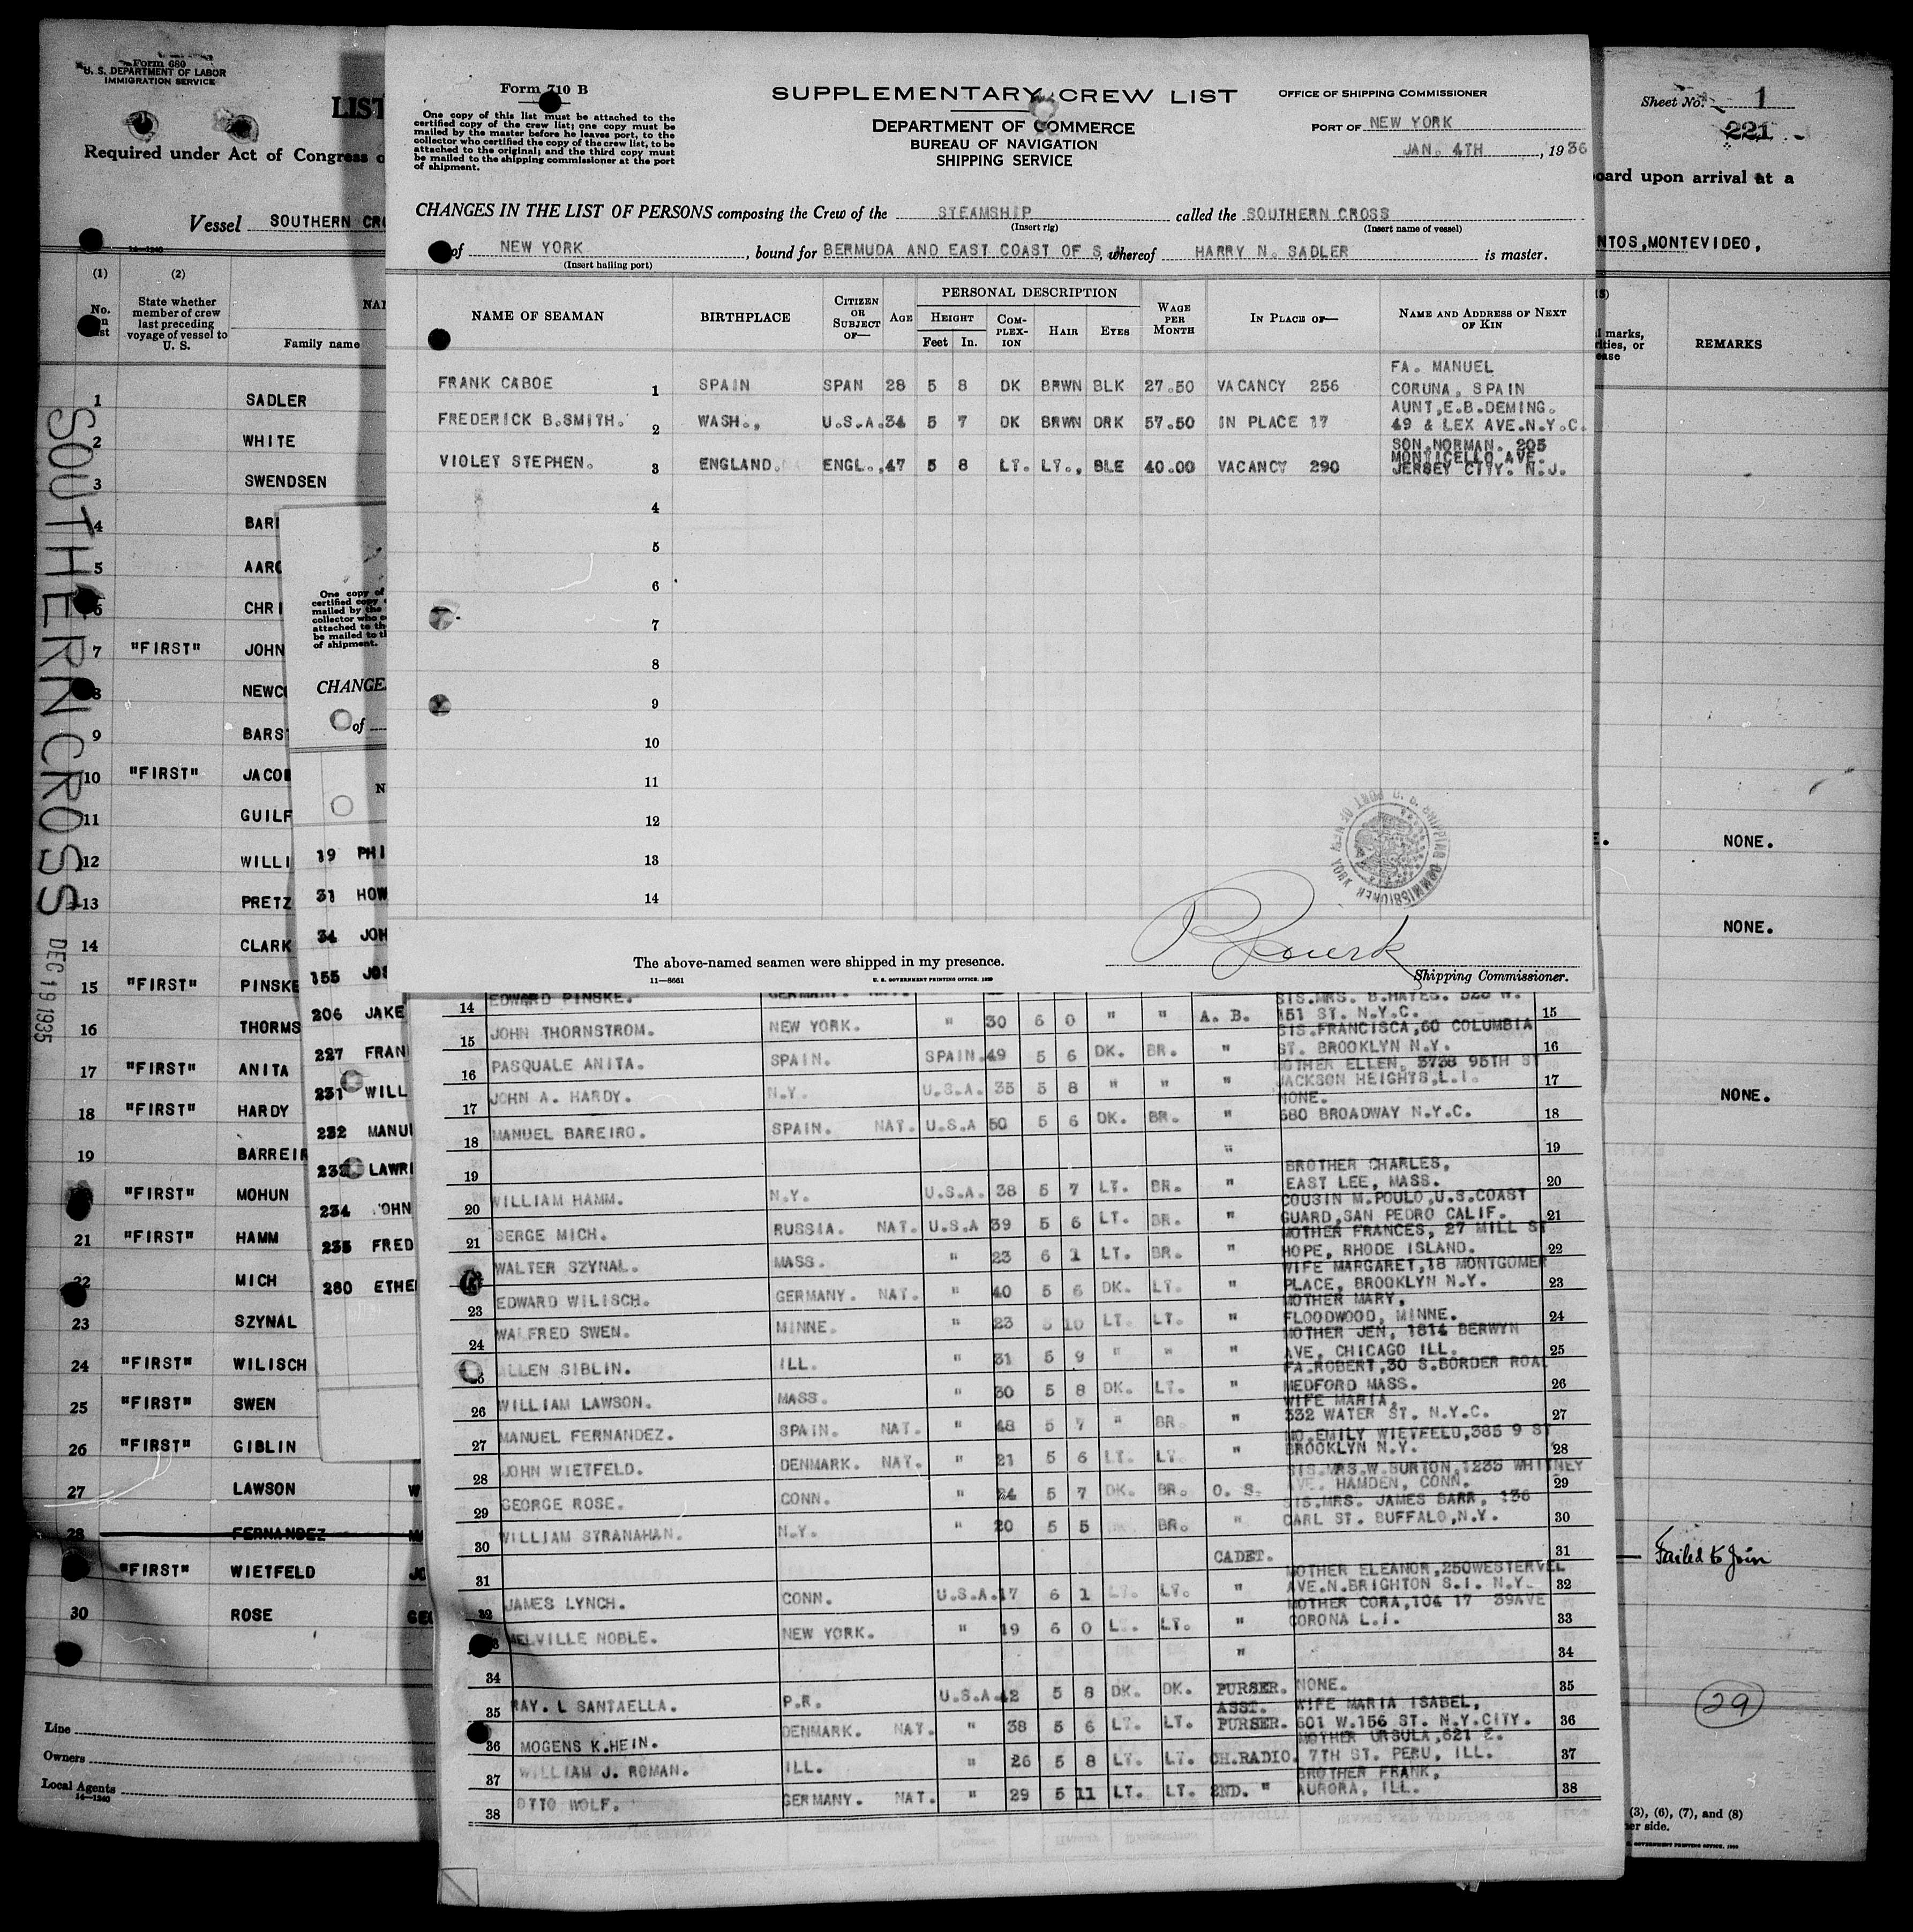 Form 680
U. S. DEPARTMENT OF LABOR
IMMIGRATION SERVICE
LIST
Required under Act of Congress
Vessel SOUTHERN CRO
14—1240
(1) (2)
No. on list
State whether member of crew last preceding voyage of vessel to U. S.
Family name
1 SADLER
2 WHITE
3 SWENDSEN
4 BARI
5 AARO
6 CHRI
7 "FIRST" JOHN
8 NEWCO
9 BARS
10 "FIRST" JACOB
11 GUILF
12 WILLI
13 PRETZ
14 CLARK
15 "FIRST" PINSKE
16 THORMS
17 "FIRST" ANITA
18 "FIRST" HARDY
19 BARREIR
"FIRST" MOHUN
21 "FIRST" HAMM
22 MICH
23 SZYNAL
24 "FIRST" WILISCH
25 "FIRST" SWEN
26 "FIRST" GIBLIN
27 LAWSON W
28 FERNANDEZ
"FIRST" WIETFELD JO
30 ROSE GEO
Line
Owners
Local Agents
14—1240
SOUTHERN CROSS
DEC 19 1935
One copy of
certified copy
mailed by the
collector who c
attached to the
be mailed to th
of shipment.
CHANGE
of
N
19 PHI
31 HOW
34 JOH
155 JOS
206 JAKE
227 FRAN
231 WILL
232 MANU
233 LAWRI
234 JOHN
235 FRED
280 ETHE
Form 710 B
One copy of this list must be attached to the
certified copy of the crew list; one copy must be
mailed by the master before he leaves port, to the
collector who certified the copy of the crew list, to be
attached to the original; and the third copy must
be mailed to the shipping commissioner at the port
of shipment.
SUPPLEMENTARY CREW LIST
DEPARTMENT OF COMMERCE
BUREAU OF NAVIGATION
SHIPPING SERVICE
OFFICE OF SHIPPING COMMISSIONER
PORT OF NEW YORK
JAN. 4TH, 1936
CHANGES IN THE LIST OF PERSONS composing the Crew of the STEAMSHIP called the SOUTHERN CROSS
(Insert rig) (Insert name of vessel)
of NEW YORK, bound for BERMUDA AND EAST COAST OF S.A., whereof HARRY N. SADLER is master.
(Insert hailing port)
NAME OF SEAMAN BIRTHPLACE CITIZEN OR SUBJECT OF— AGE PERSONAL DESCRIPTION HEIGHT Feet In. COM-PLEX-ION HAIR EYES WAGE PER MONTH IN PLACE OF— NAME AND ADDRESS OF NEXT OF KIN
FA. MANUEL
FRANK CABOE 1 SPAIN SPAN 28 5 8 DK BRWN BLK 27.50 VACANCY 256 CORUNA, SPAIN
AUNT,E.B.DEMING.
FREDERICK B.SMITH. 2 WASH., U.S.A. 34 5 7 DK BRWN DRK 57.50 IN PLACE 17 49 & LEX AVE.N.Y.C.
SON,NORMAN. 205
MONTICELLO AVE.
VIOLET STEPHEN. 3 ENGLAND. ENGL., 47 5 8 LT. LT., BLE 40.00 VACANCY 290 JERSEY CITY. N.J.
4
5
6
7
8
9
10
11
12
13
14
U.S. SHIPPING COMMISSIONER PORT OF NEW YORK
The above-named seamen were shipped in my presence.
Shipping Commissioner.
11—8661 U. S. GOVERNMENT PRINTING OFFICE
14 EDWARD PINSKE. GERMANY. NAT.
SIS.MRS. B.HAYES. 526 W.
15 JOHN THORNSTROM. NEW YORK. " 30 6 0 " " A. B. 151 ST. N.Y.C. 15
SIS.FRANCISCA,60 COLUMBIA
16 PASQUALE ANITA. SPAIN. SPAIN. 49 5 6 DK. BR. " ST. BROOKLYN N.Y. 16
MOTHER ELLEN, 3738 95TH ST
17 JOHN A. HARDY. N.Y. U.S.A. 35 5 8 " " " JACKSON HEIGHTS,L.I. 17
NONE.
18 MANUEL BAREIRO. SPAIN. NAT. U.S.A 50 5 6 DK. BR. " 680 BROADWAY N.Y.C. 18
19 " 19
BROTHER CHARLES,
20 WILLIAM HAMM. N.Y. U.S.A. 38 5 7 LT. BR. " EAST LEE, MASS. 20
COUSIN M.POULO,U.S.COAST
21 SERGE MICH. RUSSIA. NAT. U.S.A 39 5 6 LT. BR. " GUARD,SAN PEDRO CALIF. 21
MOTHER FRANCES, 27 MILL ST
WALTER SZYNAL. MASS. " 23 6 1 LT. BR. " HOPE, RHODE ISLAND. 22
WIFE MARGARET,18 MONTGOMER
23 EDWARD WILISCH. GERMANY. NAT. " 40 5 6 DK. LT. " PLACE, BROOKLYN N.Y. 23
MOTHER MARY,
24 WALFRED SWEN. MINNE. " 23 5 10 LT. LT. " FLOODWOOD, MINNE. 24
MOTHER JEN, 1814 BERWYN
ALLEN SIBLIN. ILL. " 31 5 9 " " " AVE, CHICAGO ILL. 25
FA.ROBERT,30 S.BORDER ROAD
26 WILLIAM LAWSON. MASS. " 30 5 8 DK. LT. " MEDFORD MASS. 26
WIFE MARIA,
27 MANUEL FERNANDEZ. SPAIN. NAT. " 48 5 7 " BR. " 332 WATER ST. N.Y.C. 27
MO.EMILY WIETFELD,385 9 ST
28 JOHN WIETFELD. DENMARK. NAT. " 21 5 6 LT. LT. " BROOKLYN N.Y. 28
SIS.MRS.W.BURTON,1235 WHITNEY
29 GEORGE ROSE. CONN. " 24 5 7 DK. BR. O. S. AVE. HAMDEN, CONN. 29
SIS.MRS. JAMES BARR, 136
30 WILLIAM STRANAHAN. N.Y. " 20 5 5 BR. " CARL ST. BUFFALO,N.Y. 30
31 CADET. 31
MOTHER ELEANOR,250WESTERVEL
32 JAMES LYNCH. CONN. U.S.A. 17 6 1 LT. LT. " AVE.N.BRIGHTON S.I. N.Y. 32
MOTHER CORA,104 17 39AVE
MELVILLE NOBLE. NEW YORK. " 19 6 0 L. LT. " CORONA L.I. 33
34 " 34
35 RAY. L SANTAELLA. P.R. U.S.A. 42 5 8 DK. DK. PURSER. NONE. 35
ASST. WIFE MARIA ISABEL,
36 MOGENS K.HEIN. DENMARK. NAT. " 38 5 6 LT. LT. PURSER. 601 W.156 ST. N.Y.CITY. 36
MOTHER URSULA,621 E.
37 WILLIAM J. ROMAN. ILL. " 26 5 8 LT. LT. CH.RADIO. 7TH ST. PERU, ILL. 37
BROTHER FRANK,
38 OTTO WOLF. GERMANY. NAT. " 29 5 11 LT. LT. 2ND. " AURORA, ILL. 38
Sheet No. 1
221
oard upon arrival at a
NTOS,MONTEVIDEO,
REMARKS
NONE.
NONE.
NONE.
Failed to Join
29
(3), (6), (7), and (8)
er side.